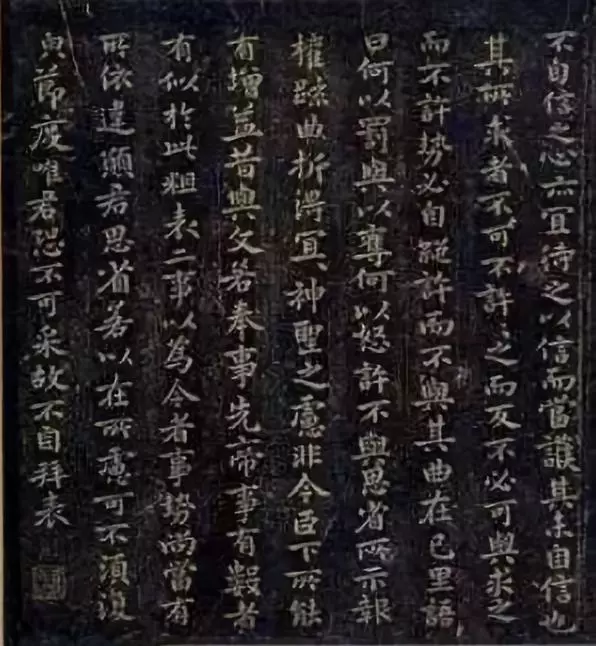 不自信之心亦宜待之以信而當護其未自信也
其所求者不可不許〻之而反不必可與求之
而不許勢必自絕許而不與其曲在己里語
曰何以罰與以奪何以怒許不與思省所示報
權疏曲折得宜神聖之慮非今臣下所能
有增益昔與文若奉事先帝事有數者
有似於此粗表二事以為今者事勢尚當有
所依違願君思省若以在所慮可不須復
與節度唯君恐不可采故不自拜表